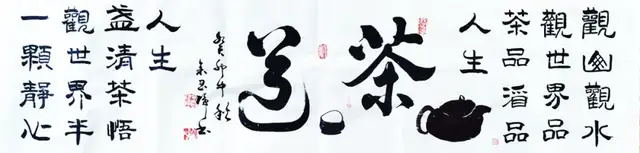 觀山觀水
觀世界品
茶品酒品
人生
茶道
癸卯中秋
一顆靜心
觀世界半
盞清茶悟
人生